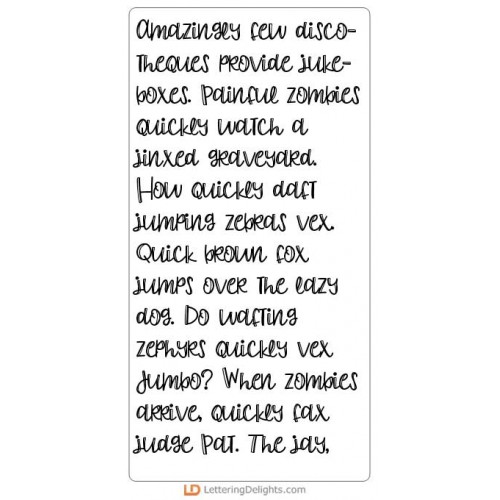 Amazingly few disco-
theques provide juke-
boxes. Painful zombies
quickly watch a
jinxed graveyard.
How quickly daft
jumping zebras vex.
Quick brown fox
jumps over the lazy
dog. Do wafting
zephyrs quickly vex
Jumbo? When zombies
arrive, quickly fax
judge Pat. The jay,
LD LetteringDelights.com